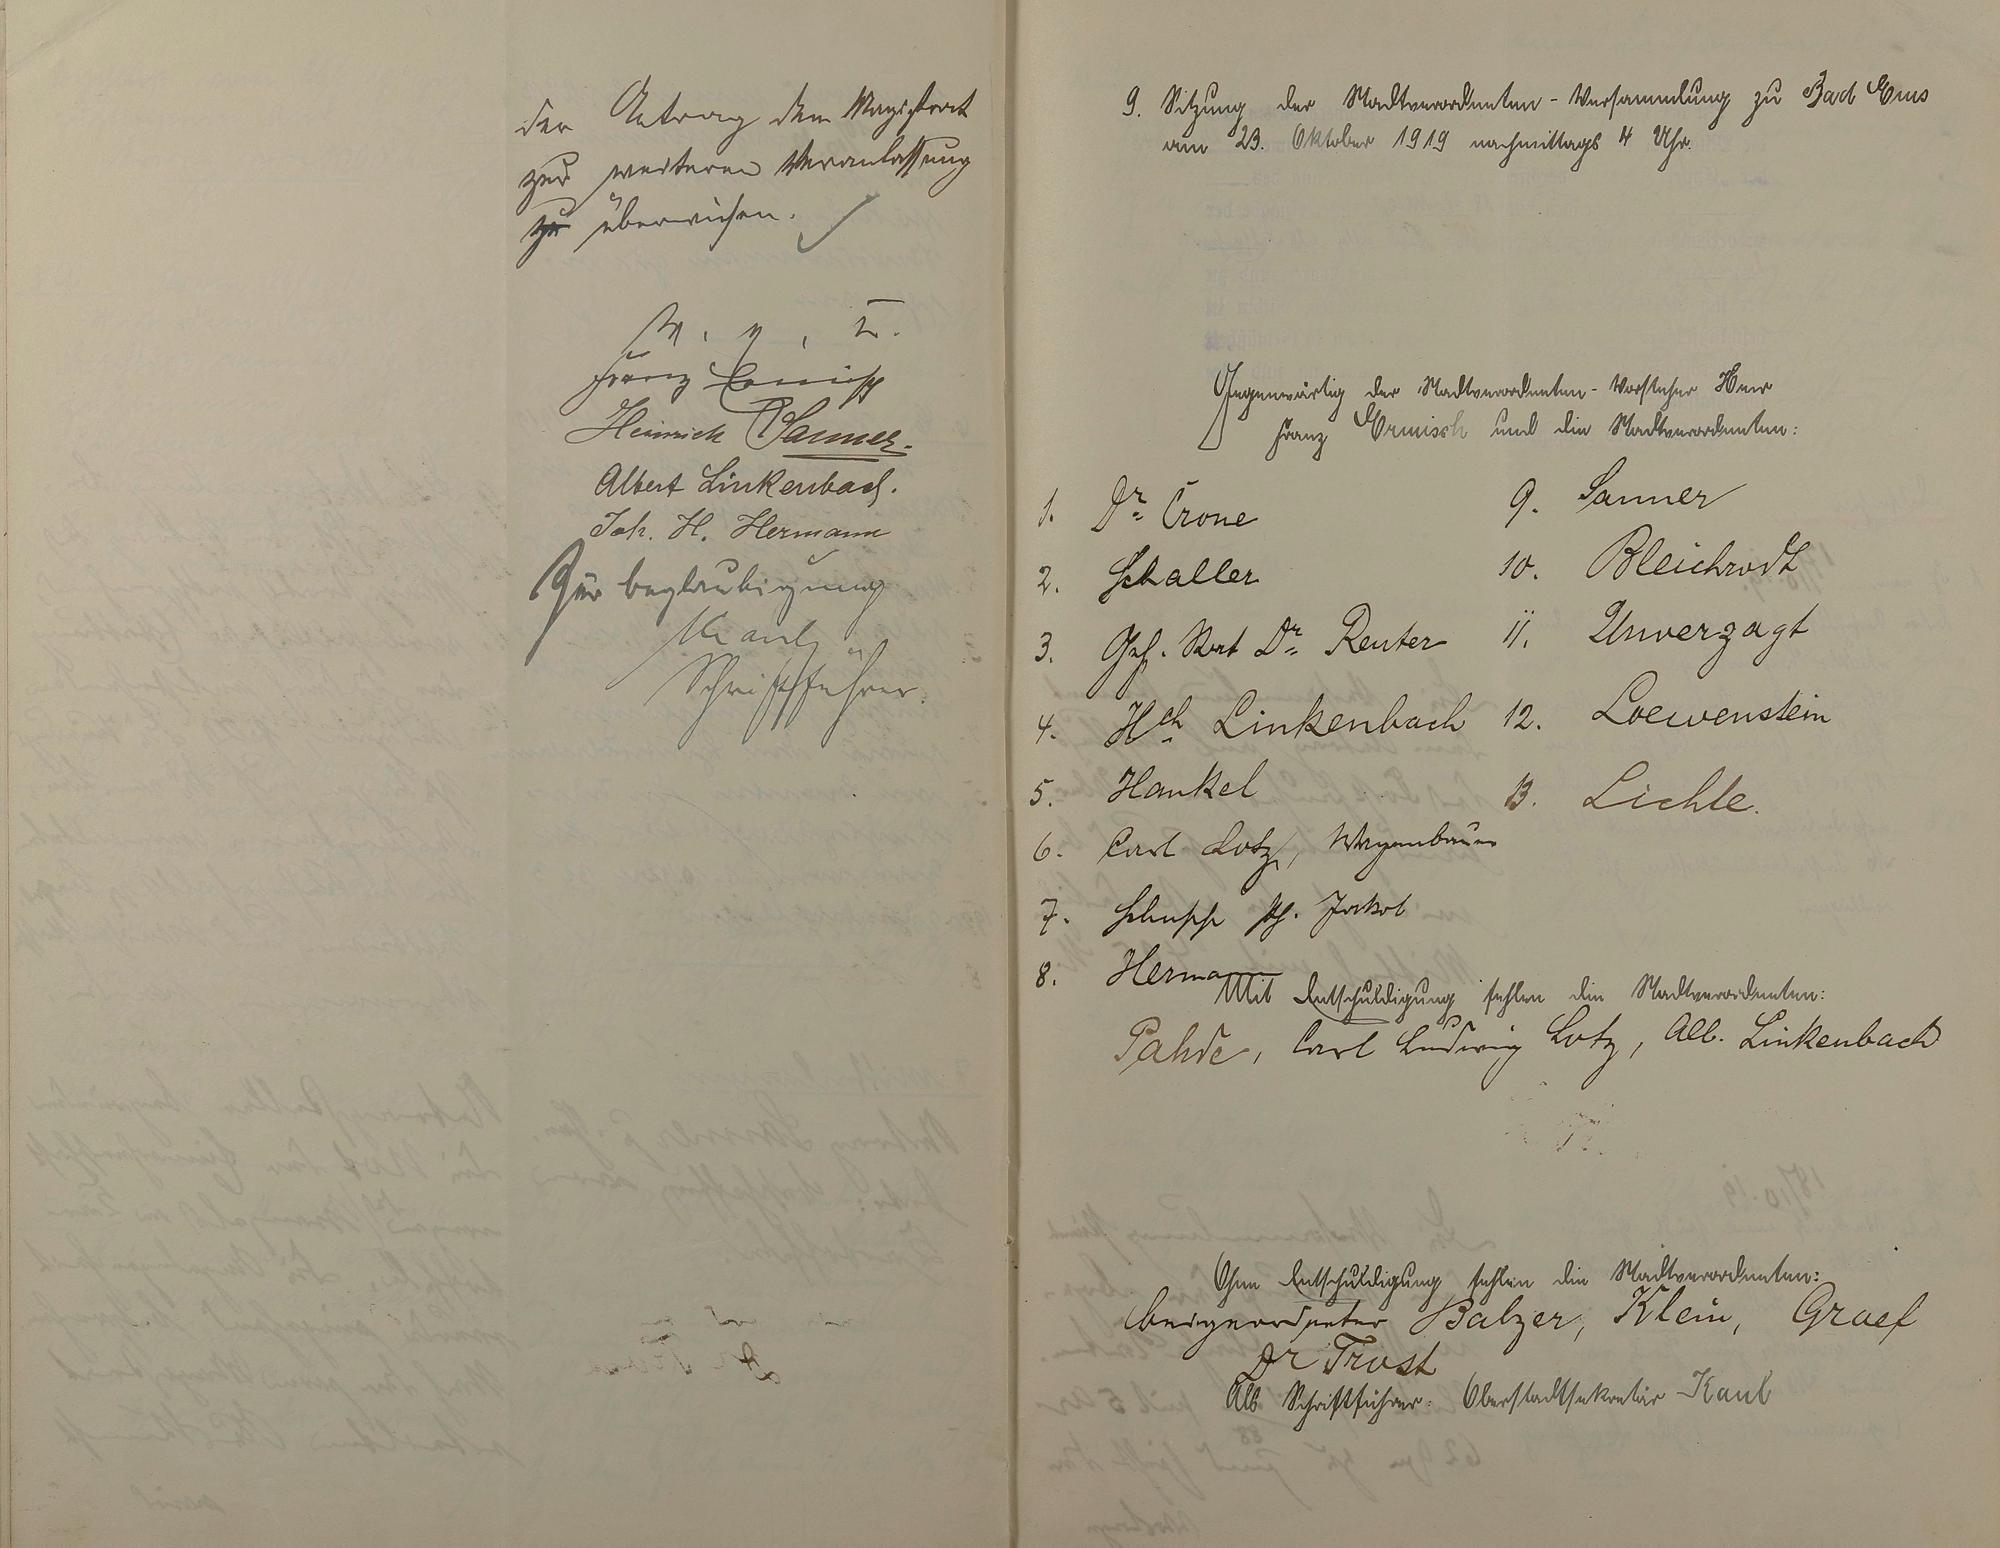 der Antrag dem Magistrat
zur weiteren Veranlassung
zu überwiesen.
v. g. u.
Franz Ermisch
Heinrich Sanner.
Albert Linkenbach.
Joh. H. Hermann
Zur Beglaubigung
Kaul
Schriftführer.
9. Sitzung der Stadtverordneten-Versammlung zu Bad Ems
am 23. Oktober 1919 nachmittags 4 Uhr.
Gegenwärtig der Stadtverordneten-Vorsteher Herr
Franz Ermisch und die Stadtverordneten:
1. Dr. Crone
2. Schaller
3. Geh. Rat Dr. Reuter
4. Hch Linkenbach
5. Hankel
6. Carl Lotz, Wagenbauer
7. Schupp Ph. Jakob
8. Hermann
9. Sanner
10. Bleichrodt
11. Unverzagt
12. Loewenstein
13. Lichle.
Mit Entschuldigung fehlen die Stadtverordneten:
Pahde, Carl Ludwig Lotz, Alb. Linkenbach
Ohne Entschuldigung fehlen die Stadtverordneten:
beigeordneter Balzer, Klein, Graef
Dr Trost
Als Schriftführer: Oberstadtsekretär Kaul